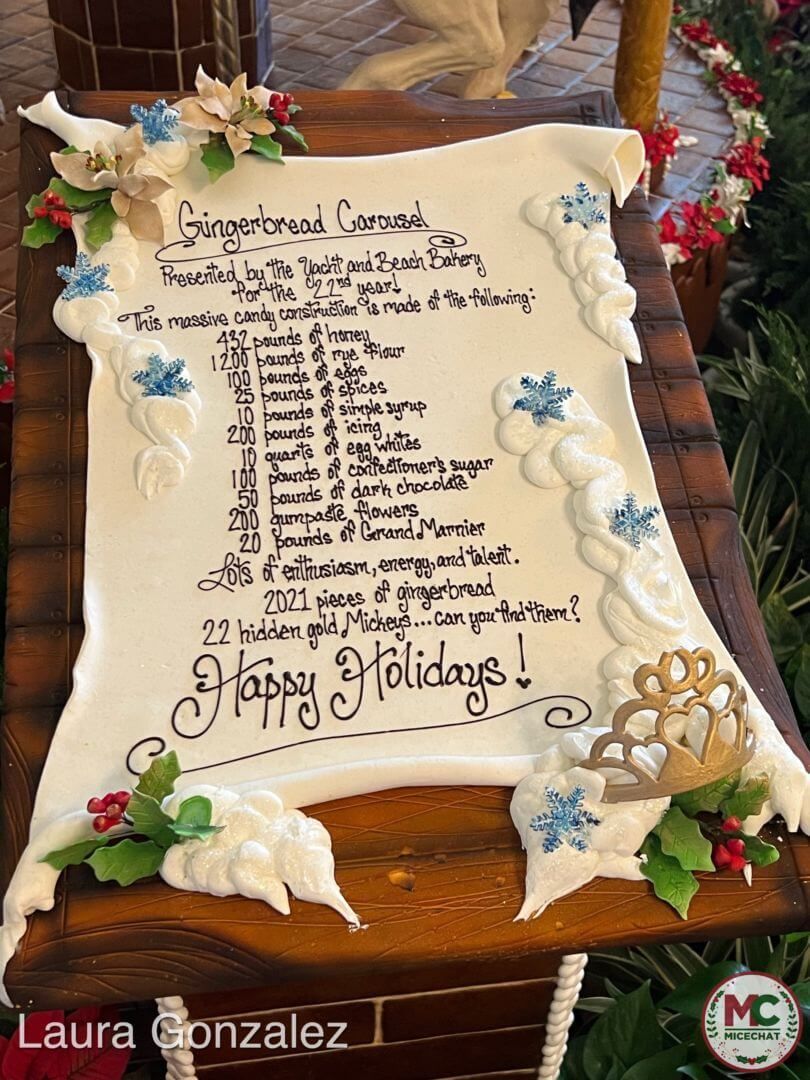 Gingerbread Carousel
Presented by the Yacht and Beach Bakery
for the 22nd year!
This massive candy construction is made of the following:
432 pounds of honey
1200 pounds of rye flour
100 pounds of eggs
25 pounds of spices
10 pounds of simple syrup
200 pounds of icing
10 quarts of egg whites
100 pounds of confectioner's sugar
50 pounds of dark chocolate
200 gumpaste flowers
20 pounds of Grand Marnier
Lots of enthusiasm, energy, and talent.
2021 pieces of gingerbread
22 hidden gold Mickeys...can you find them?
Happy Holidays!
Laura Gonzalez
MC
MICECHAT